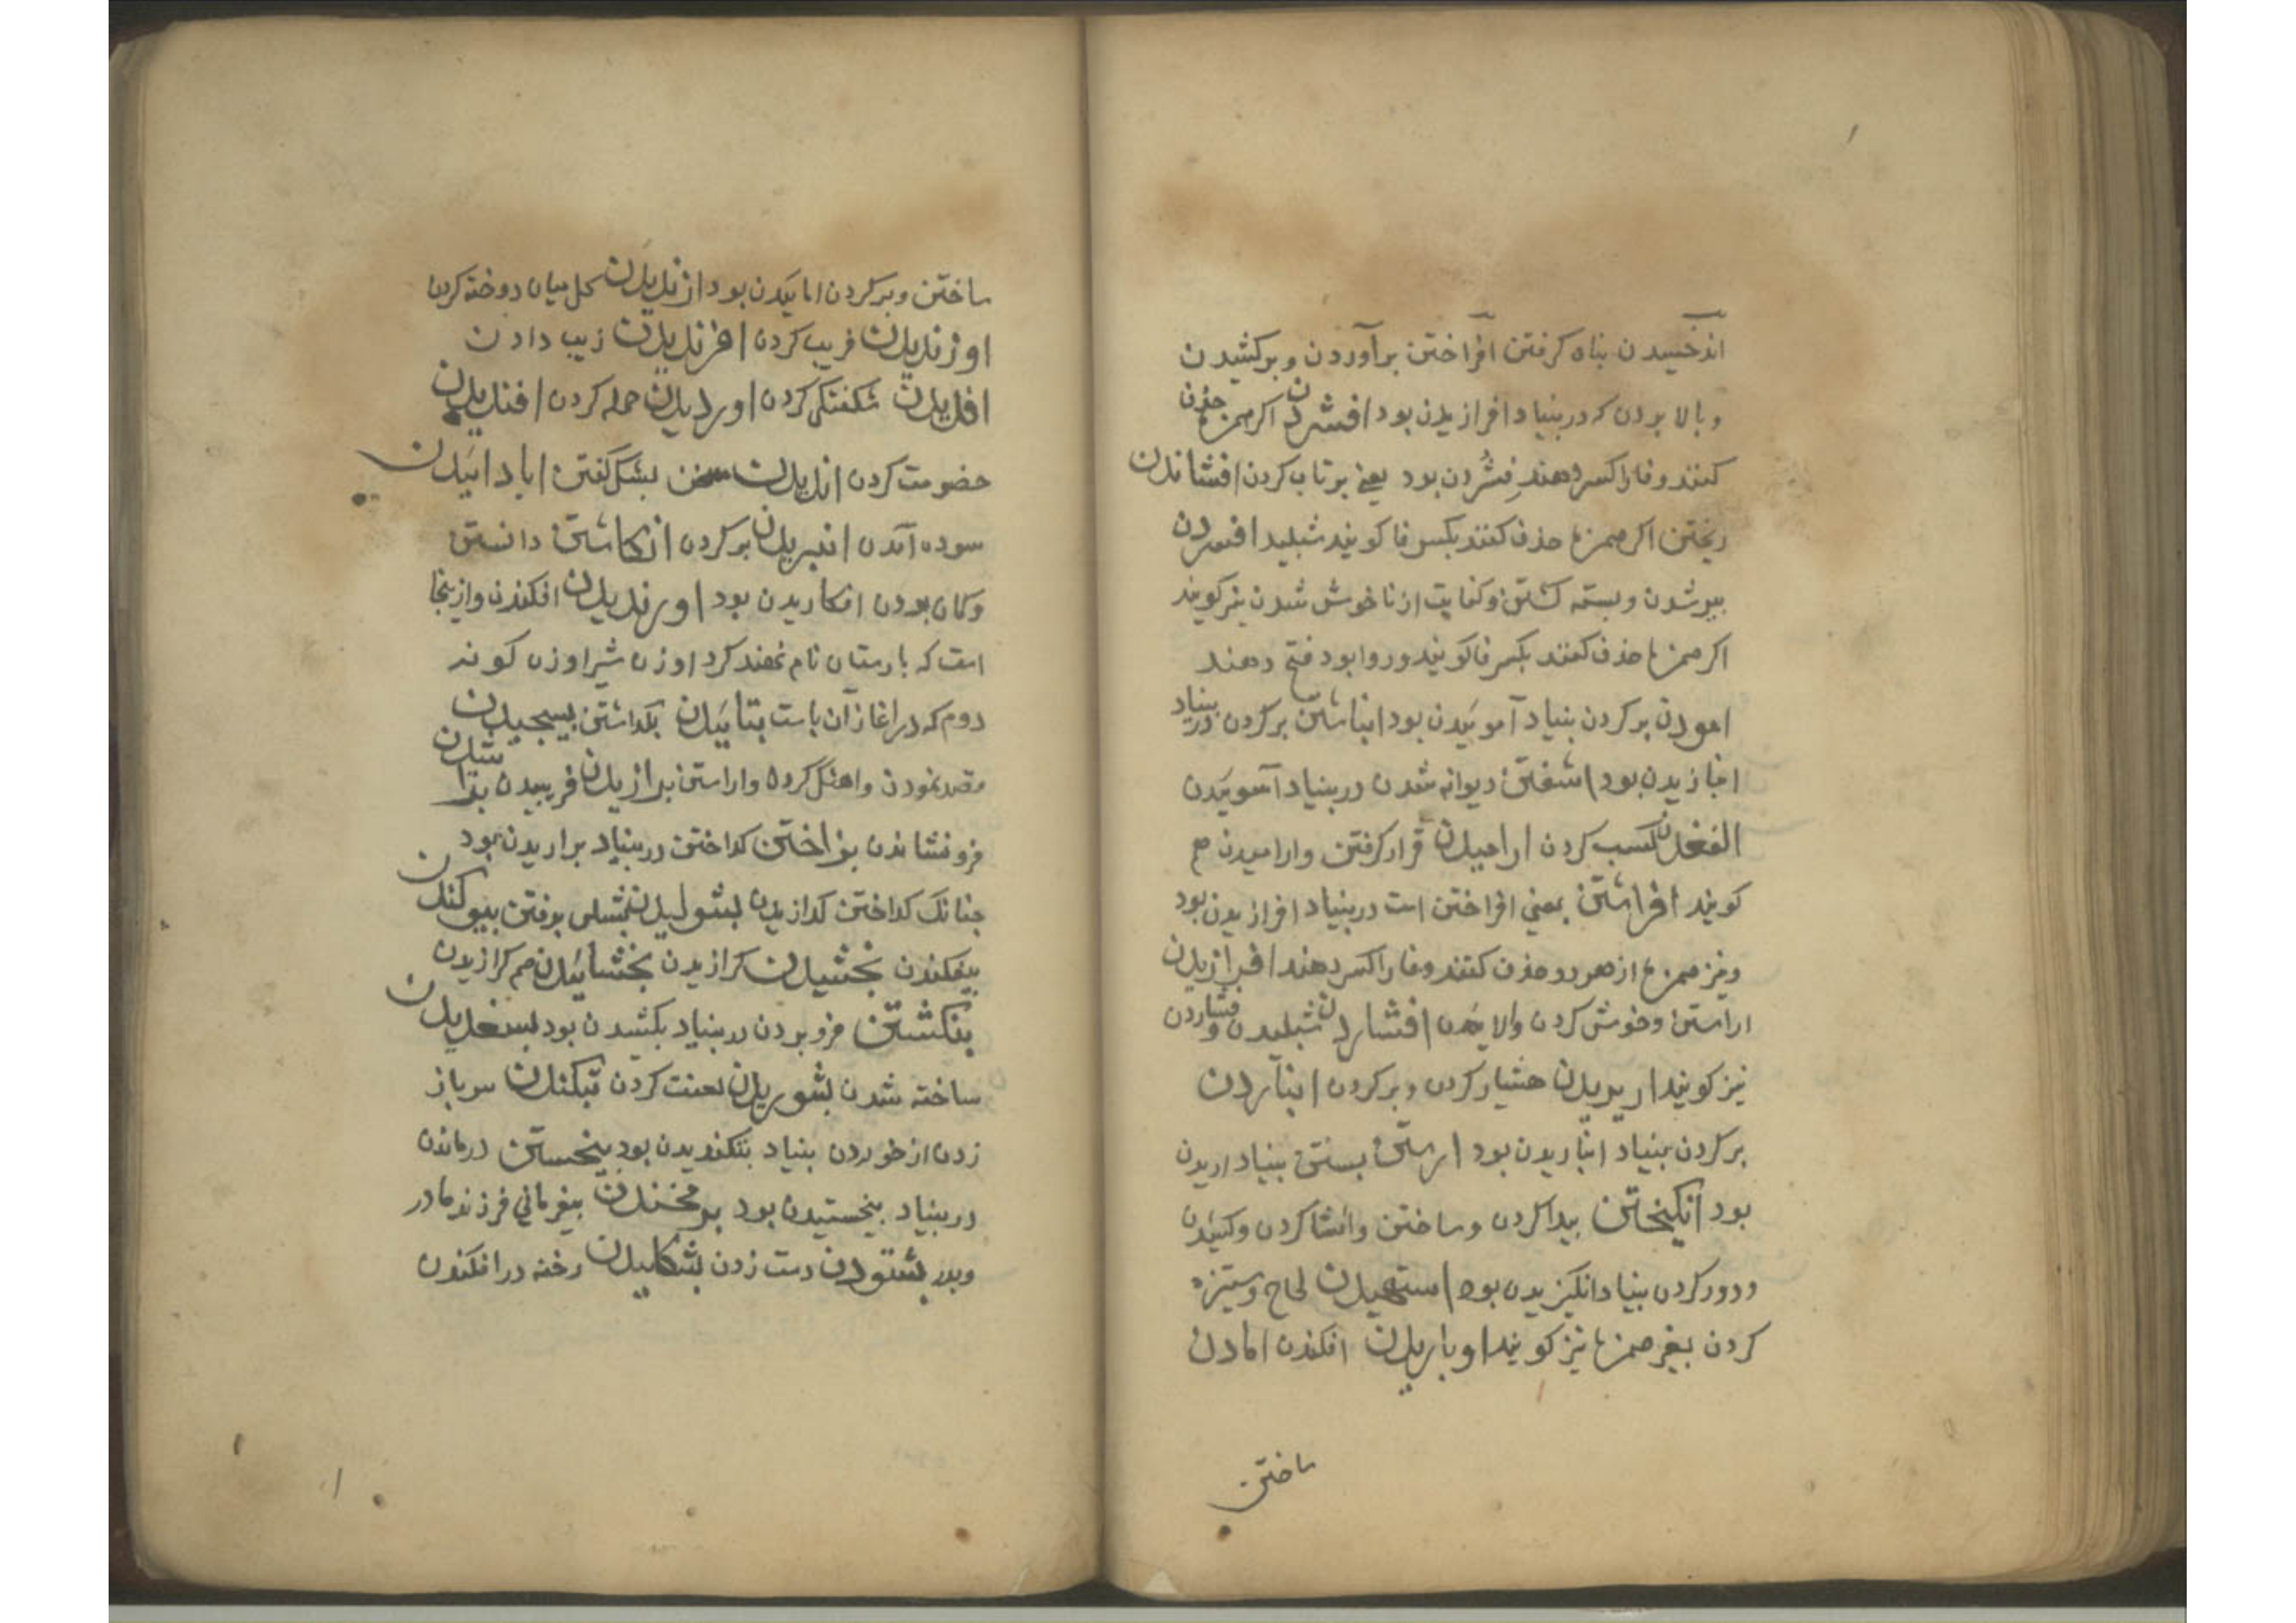 اندخسیدن پناه کرفتن افراختن برآوردن و برکشیدن
و بالا بردن که در بنیاد افرازیدن بود افشردن اکر همزه حذف
کنند و فا را کسر دهند فشردن بود یعنی پرتاب کردن افشاندن
ریختن اکر همزه حذف کنند بکسر فا کویند شبلید افسردن
شدن و بسته کشتن و کنایت از ناخوش شدن نیز کویند
اکر همزه حذف کنند بکسر فا کویند و روا بود فتح دهند
امودن بر کردن بنیاد آموئیدن بود انباشتن بر کردن در بنیاد
انبازیدن بود اشفتن دیوانه شدن در بنیاد آشوئیدن
الفغدن کسب کردن ارامیدن قرار کرفتن و ارامیدن هم
کویند افراشتن بمعنی افراختن است در بنیاد افرازیدن بود
و نیز همزه از هر دو حذف کنند و فا را کسر دهند افرازیدن
اراستن و خوش کردن و افشاردن شبلیدن و فشاردن
نیز کویند هشیار کردن و بر کردن انباردن
بر کردن بنیاد انباریدن بود بستن بنیاد
بود انکیختن بیدا کردن و ساختن و انشا کردن و
و دور کردن بنیاد انکیزیدن بود استهیدن لجاج و ستیزه
کردن بغیر همزه نیز کویند اوباریدن افکندن امادن
ساختن
ساختن و بر کردن امائیدن بود ازندیدن کل میان دوخته کردن
اوزندیدن فریب کردن افرندیدن زیب دادن
افدیدن شکفتکی کردن اوردیدن حمله کردن
خضومت کردن اندیدن سخن بشک کفتن
سوده آمدن انبریدن بر کردن انکاشتن دانستن
و کمان بودن انکاریدن بود اورندیدن افکندن و ازینجا
است که بارستان نام نهند کرد اوزن شیر اوزن کوند
دوم که در اغاز آن با ست بتائیدن بکذاشتن بسیجیدن
قصد نمودن و اهنک کردن و اراستن برازیدن فریبیدن
فرو نشاندن بزاختن کداختن در بنیاد برازیدن بود
جنانک کداختن کدازیدن بشولیدن برفتن بیوکندن
بیفکندن بخشیدن کرازیدن بخشائیدن هم کرازیدن
بنکشتن فرو بردن در بنیاد بکشیدن بود بسغدیدن
ساخته شدن بشوریدن لعنت کردن سرباز
زدن از خوردن بنیاد بتکندیدن بود بیخستن درماندن
در بنیاد بیخستیدن بود بیفرمانی فرزند مادر
و بدر بشتودن دست زدن بشکلیدن رخنه در افکندن